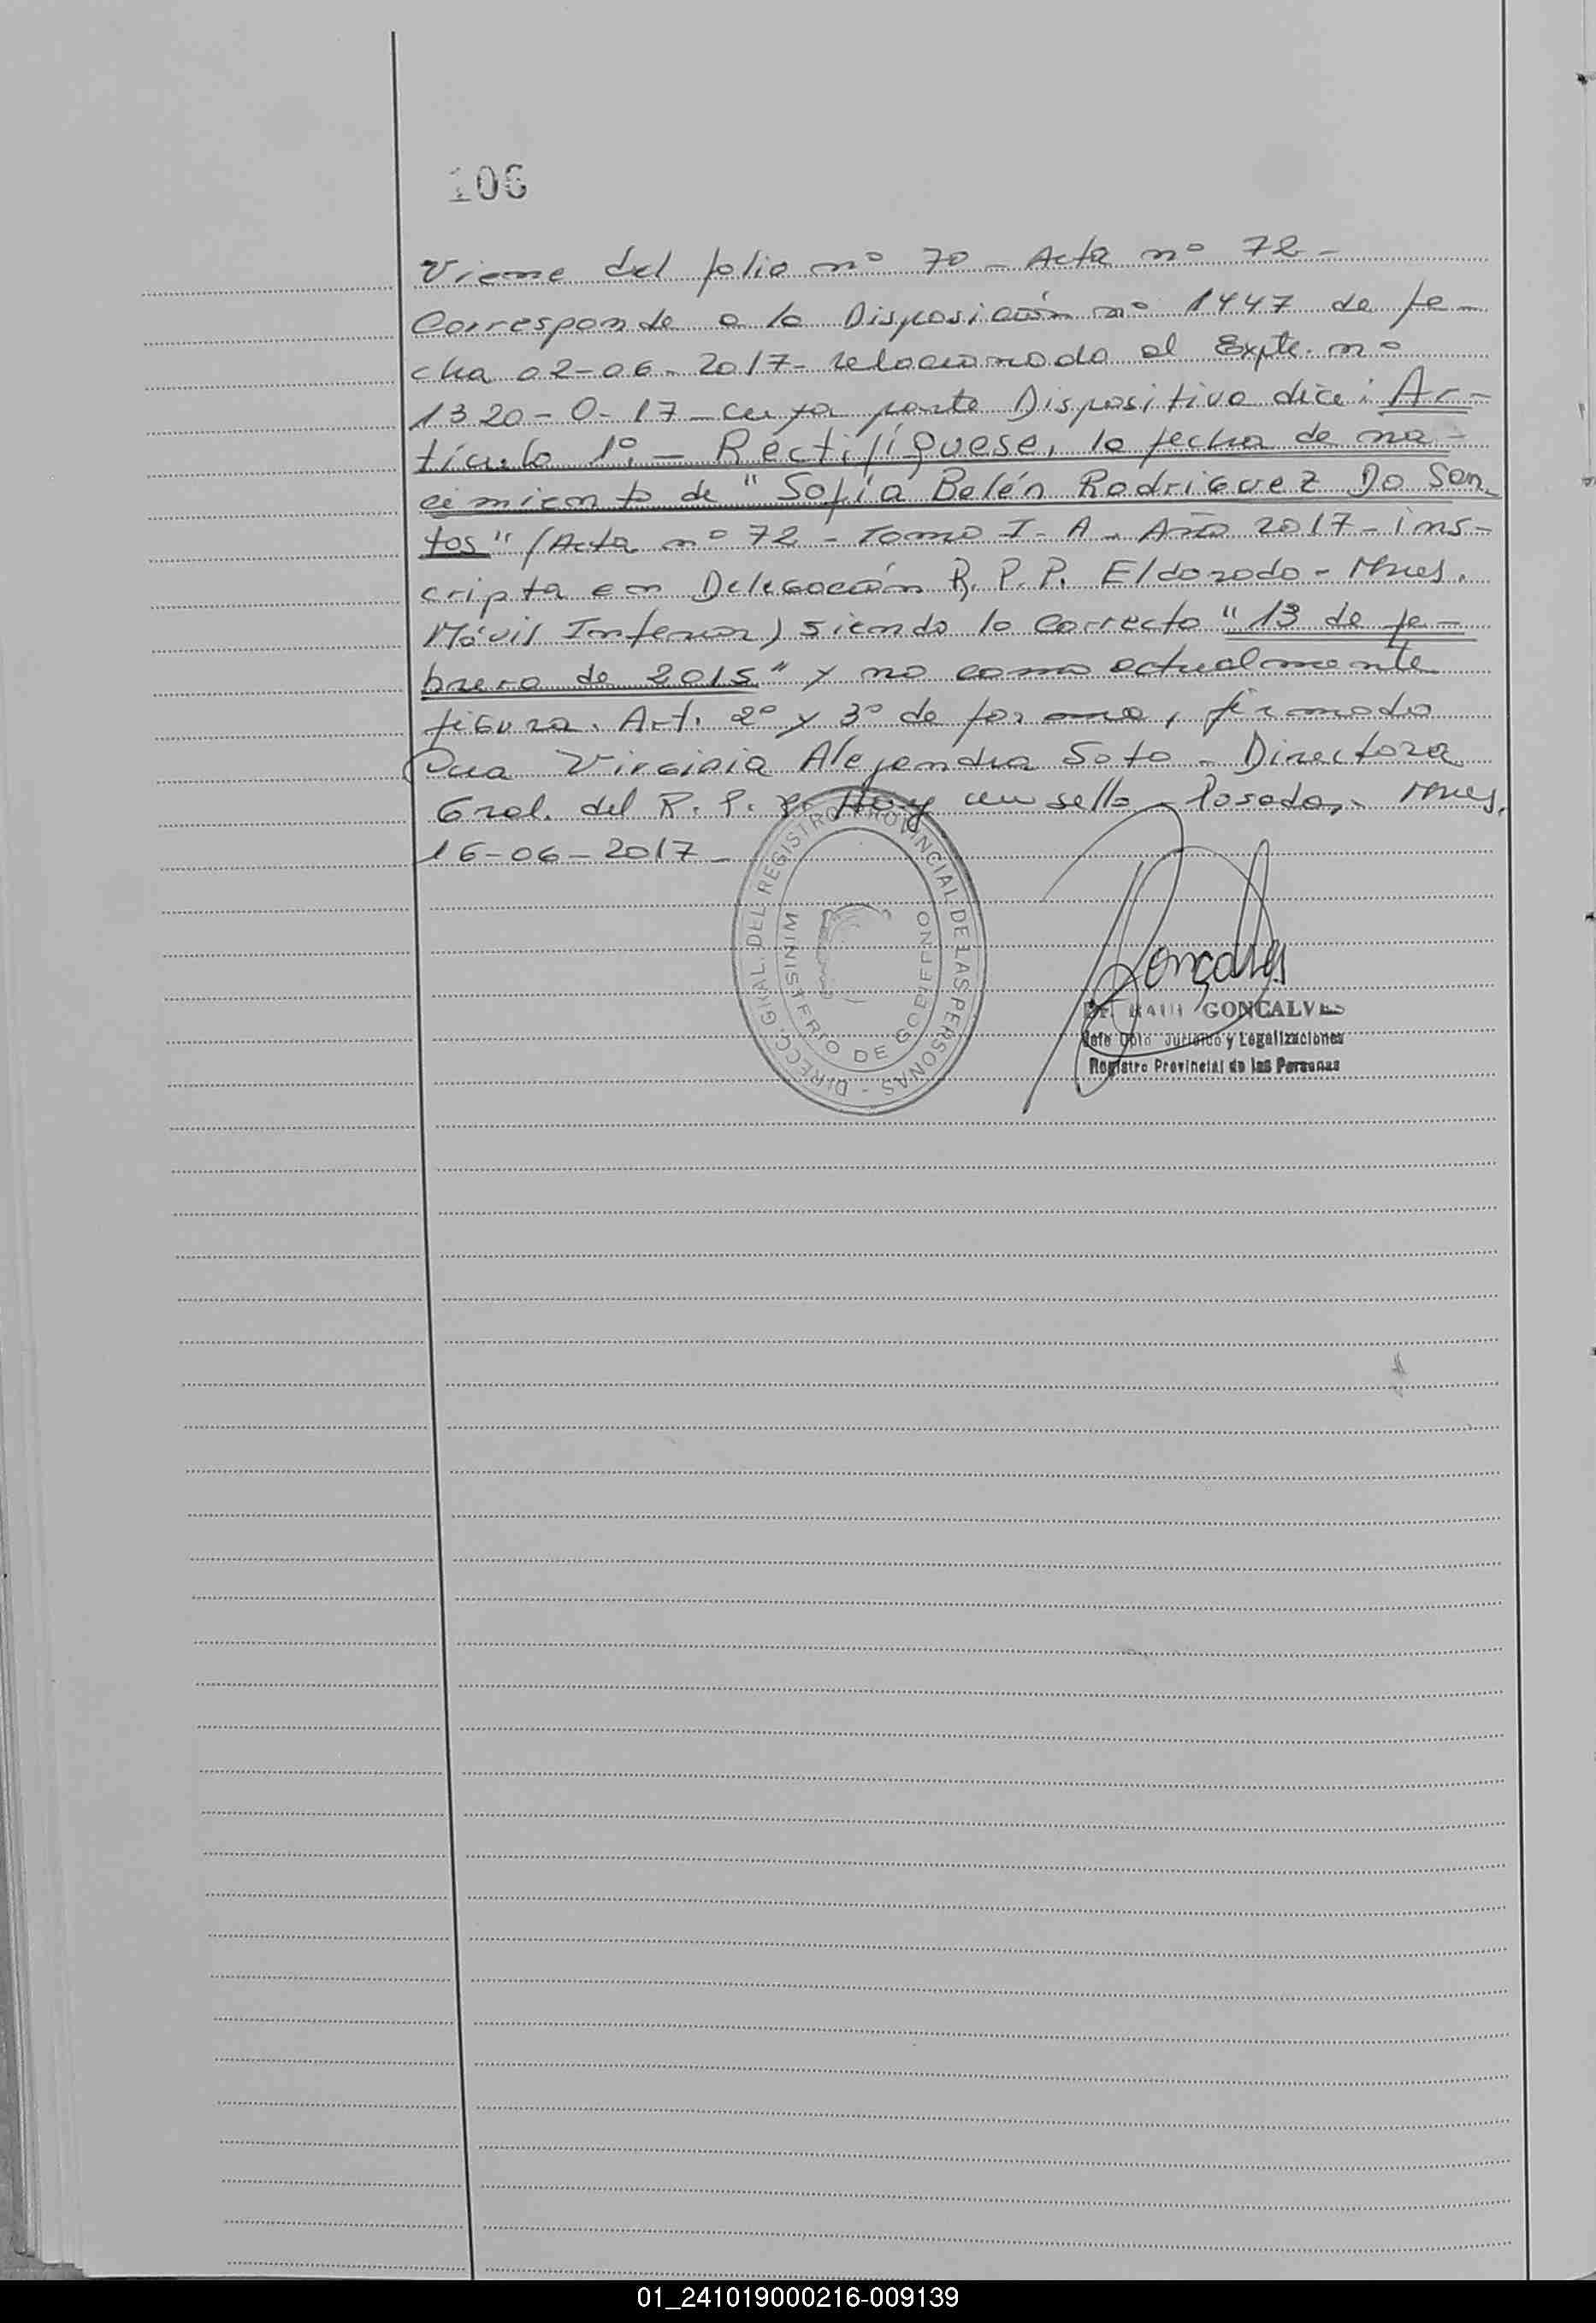 106
Viene del folio nº 70 - Acta nº 72 -
Corresponde a la Disposición nº 1447 de fe-
cha 02-06-2017- relacionado al Expte. nº
1320-O-17- cuya parte Dispositiva dice: Ar-
tículo 1º.- Rectifíquese, la fecha de na-
cimiento de "Sofía Belén Rodriguez Do San-
tos" (Acta nº 72 - Tomo I - A - Año 2017 - ins-
cripta en Delegación R. P. P. Eldorado - Mnes.
Móvil Interior) siendo lo correcto "13 de fe-
brero de 2015" y no como actualmente
figura. Art. 2º y 3º de forma, firmado
Virginia Alejandra Soto - Directora
Gral. del R. P. P. Hay un sello - Posadas, Mnes.
16-06-2017 -
DIRECC. GRAL. DEL REGISTRO PROVINCIAL DE LAS PERSONAS -
MINISTERIO DE GOBIERNO
Gonçalves
Dr. RAUL GONCALVES
Jefe Dpto Jurídico y Legalizaciones
Registro Provincial de las Personas
01_241019000216-009139